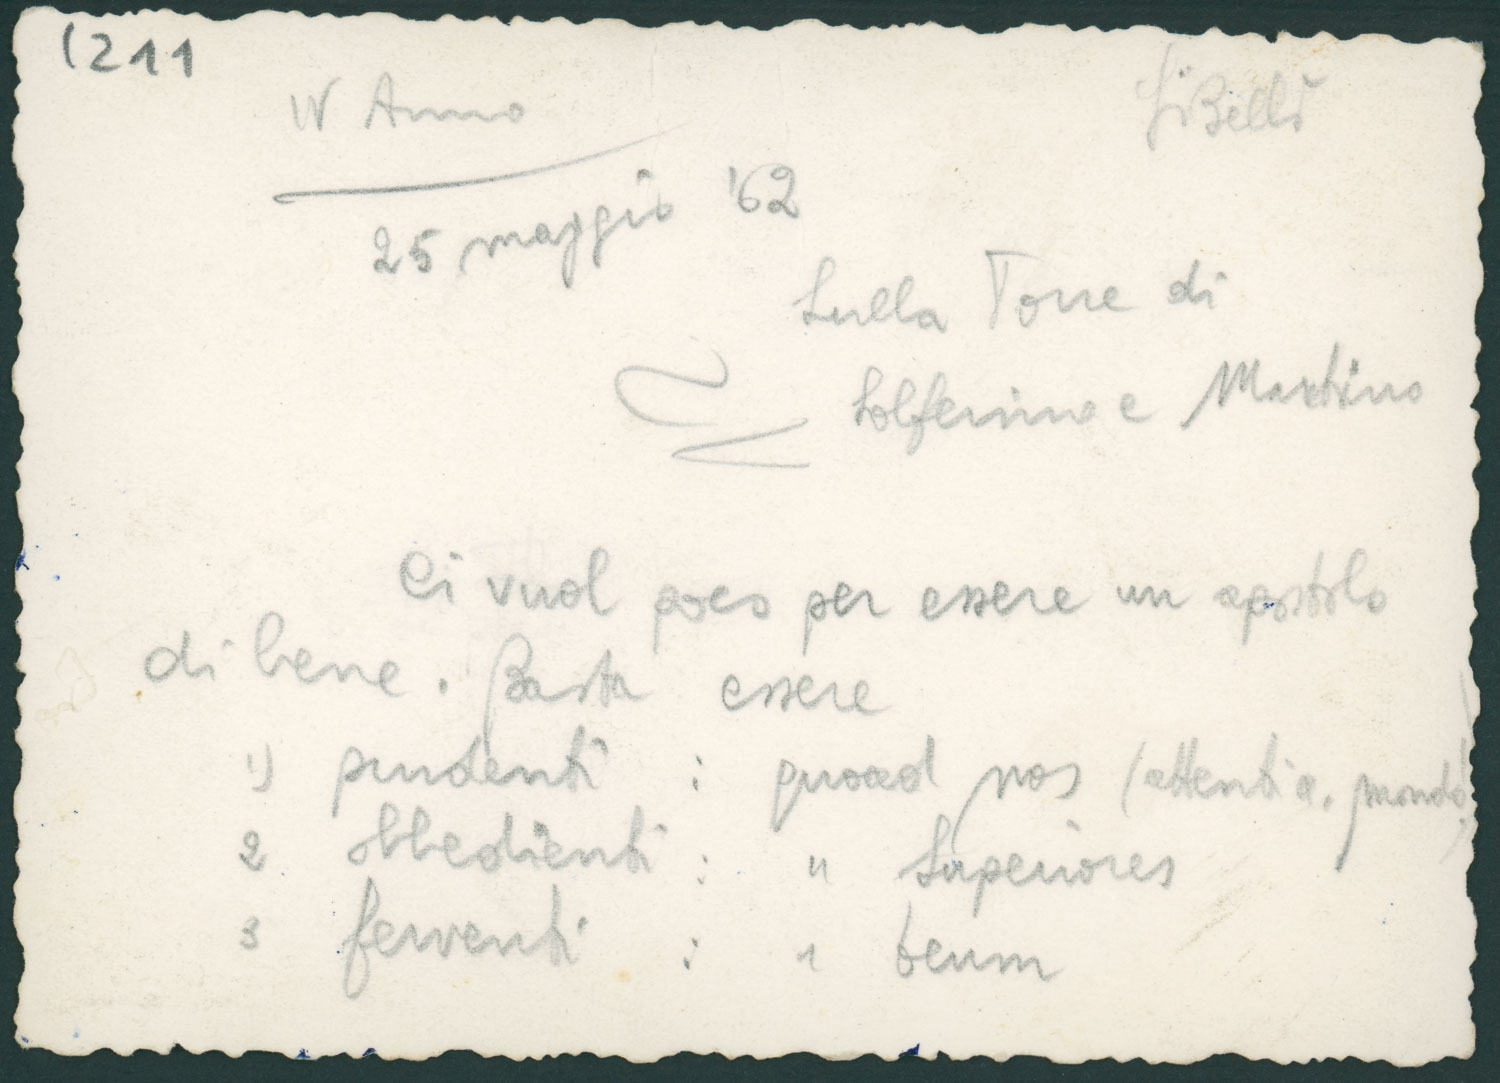 (211
IV Anno
25 maggio '62
Sulla Torre di
Solferino e Martino
Ci vuol poco per essere un apostolo
di bene. Basta essere
1) prudenti : quoad nos (attenti a. mondo!)
2 obbedienti : " Superiores
3 ferventi : " Deum